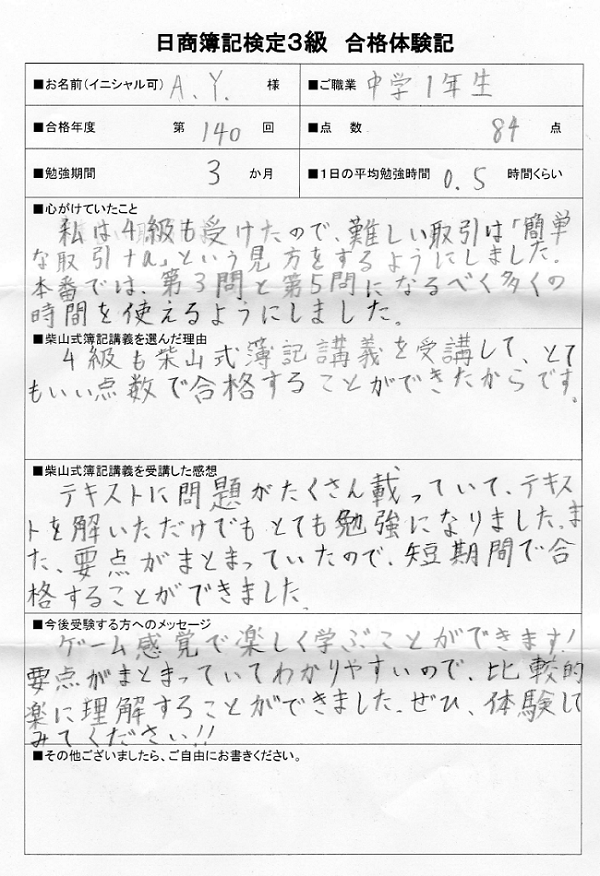 日商簿記検定3級 合格体験記
■お名前(イニシャル可) A.Y. 様 ■ご職業 中学1年生
■合格年度 第 140 回 ■点 数 84 点
■勉強期間 3 か月 ■1日の平均勉強時間 0.5 時間くらい
■心がけていたこと
私は4級も受けたので、難しい取引は「簡単
な取引+α」という見方をするようにしました。
本番では、第3問と第5問になるべく多くの
時間を使えるようにしました。
■柴山式簿記講義を選んだ理由
4級も柴山式簿記講義を受講して、とて
もいい点数で合格することができたからです。
■柴山式簿記講義を受講した感想
テキストに問題がたくさん載っていて、テキス
トを解いただけでもとても勉強になりました。ま
た、要点がまとまっていたので、短期間で合
格することができました。
■今後受験する方へのメッセージ
ゲーム感覚で楽しく学ぶことができます!
要点がまとまっていてわかりやすいので、比較的
楽に理解することができました。ぜひ、体験して
みてください!!
■その他ございましたら、ご自由にお書きください。